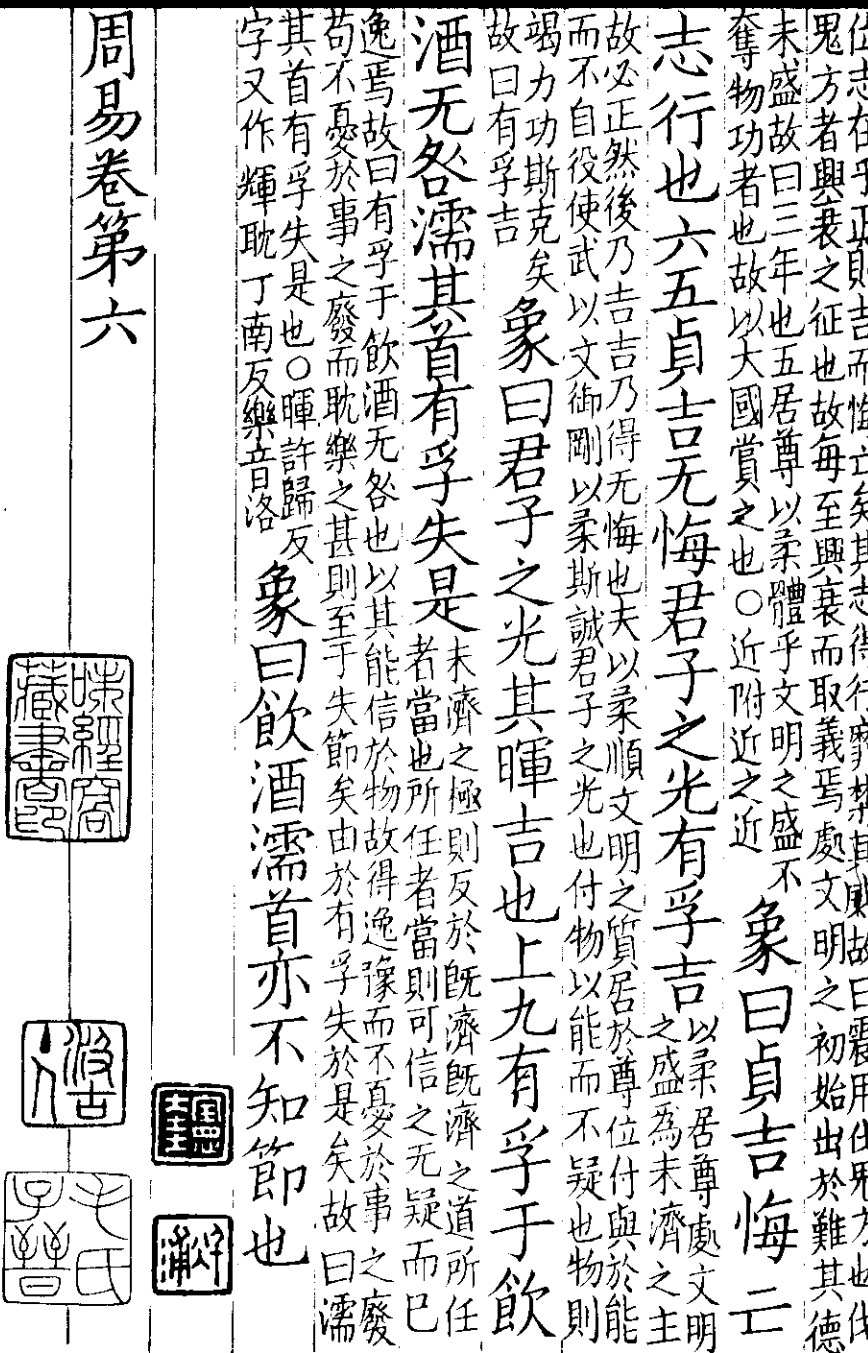 位志在乎正則吉而悔亡矣其志得行靡禁其威故曰震用伐鬼方也伐
鬼方者興衰之征也故每至興衰而取義焉處文明之初始出於難其德
未盛故曰三年也五居尊以柔體乎文明之盛不
奪物功者也故以大國賞之也○近附近之近
象曰貞吉悔亡
志行也六五貞吉无悔君子之光有孚吉
以柔居尊處文明
之盛爲未濟之主
故必正然後乃吉吉乃得无悔也夫以柔順文明之質居於尊位付與於能
而不自役使武以文御剛以柔斯誠君子之光也付物以能而不疑也物則
竭力功斯克矣
故曰有孚吉
象曰君子之光其暉吉也上九有孚于飲
酒无咎濡其首有孚失是
未濟之極則反於旣濟旣濟之道所任
者當也所任者當則可信之无疑而已
逸焉故曰有孚于飲酒无咎也以其能信於物故得逸豫而不憂於事之廢
苟不憂於事之廢而耽樂之甚則至于失節矣由於有孚失於是矣故曰濡
其首有孚失是也○暉許歸反
字又作輝耽丁南反樂音洛
象曰飲酒濡首亦不知節也
周易卷第六
汲古
主人
毛氏
子晉